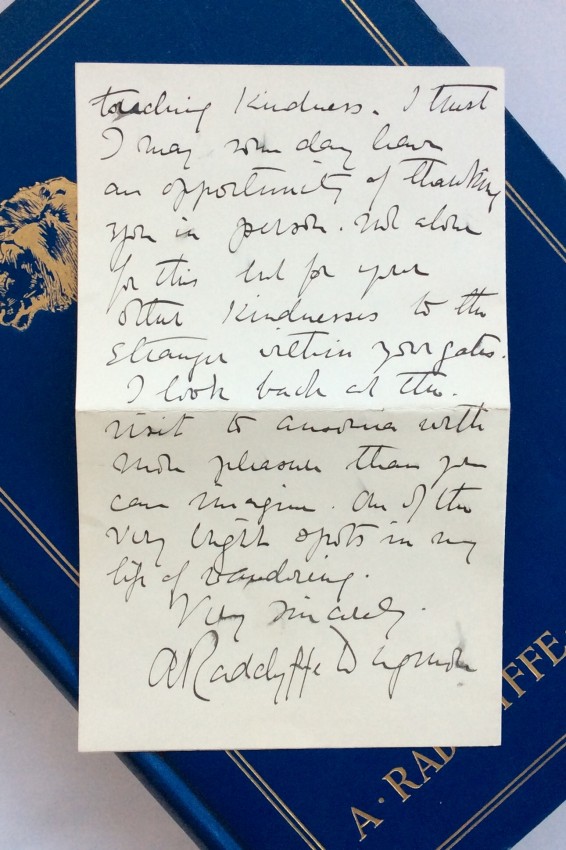 touching kindness. I trust
I may some day have
an opportunity of thanking
you in person. not alone
for this but for your
other kindnesses to the
stranger within your gates.
I look back at the
visit to with
more pleasure than you
can imagine. One of the
very bright spots in my
life of wandering.
Very sincerely.
A Radclyffe Dugmore
A · RAD
IFFE